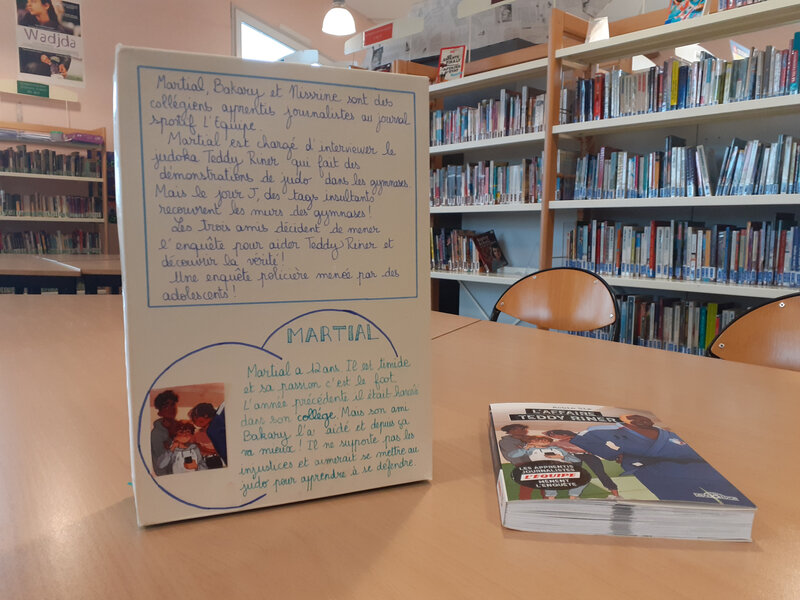 Wadjda
Martial, Bakary et Nissrine sont des
collégiens apprentis journalistes au journal
sportif L'Equipe.
Martial est chargé d'interviewer le
judoka Teddy Riner qui fait des
démonstrations de judo dans les gymnases.
Mais le jour J, des tags insultants
recouvrent les murs des gymnases !
Les trois amis décident de mener
l'enquête pour aider Teddy Riner et
découvrir la vérité !
Une enquête policière menée par des
adolescents !
MARTIAL
Martial a 12 ans. Il est timide
et sa passion c'est le foot.
L'année précédente il était harcelé
dans son collège. Mais son ami
Bakary l'a aidé et depuis ça
va mieux ! Il ne supporte pas les
injustices et aimerait se mettre au
judo pour apprendre à se défendre.
L'AFFAIRE
TEDDY RINER
LES APPRENTIS
JOURNALISTES
L'ÉQUIPE
MÈNENT
L'ENQUÊTE